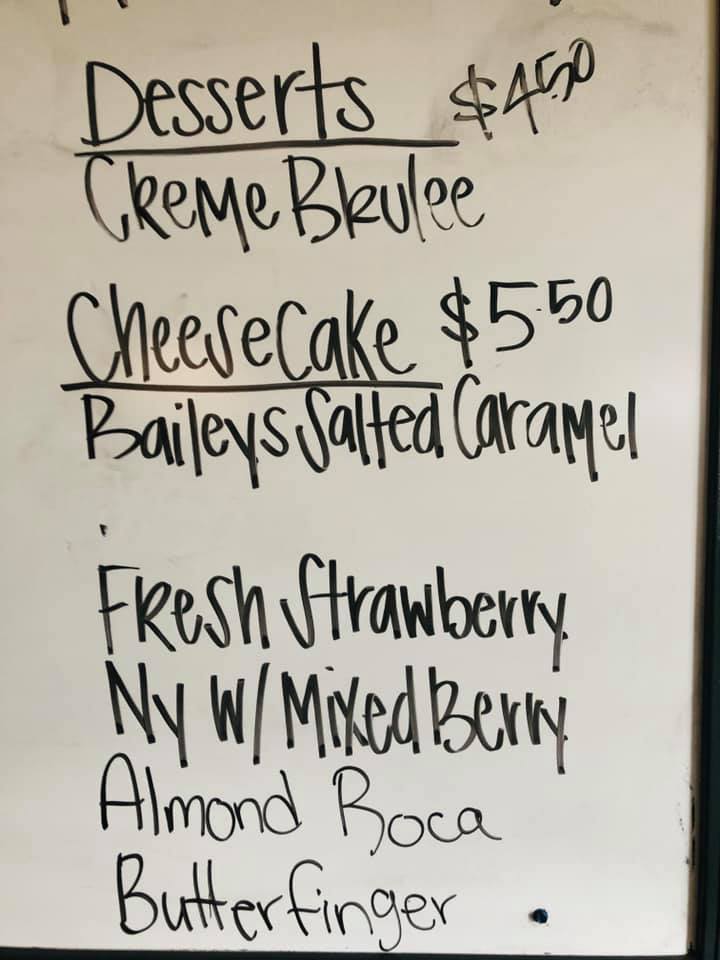 Desserts $4.50
Creme Brulee
Cheesecake $5.50
Baileys Salted Caramel
Fresh Strawberry
Ny W/ Mixed Berry
Almond Roca
Butterfinger